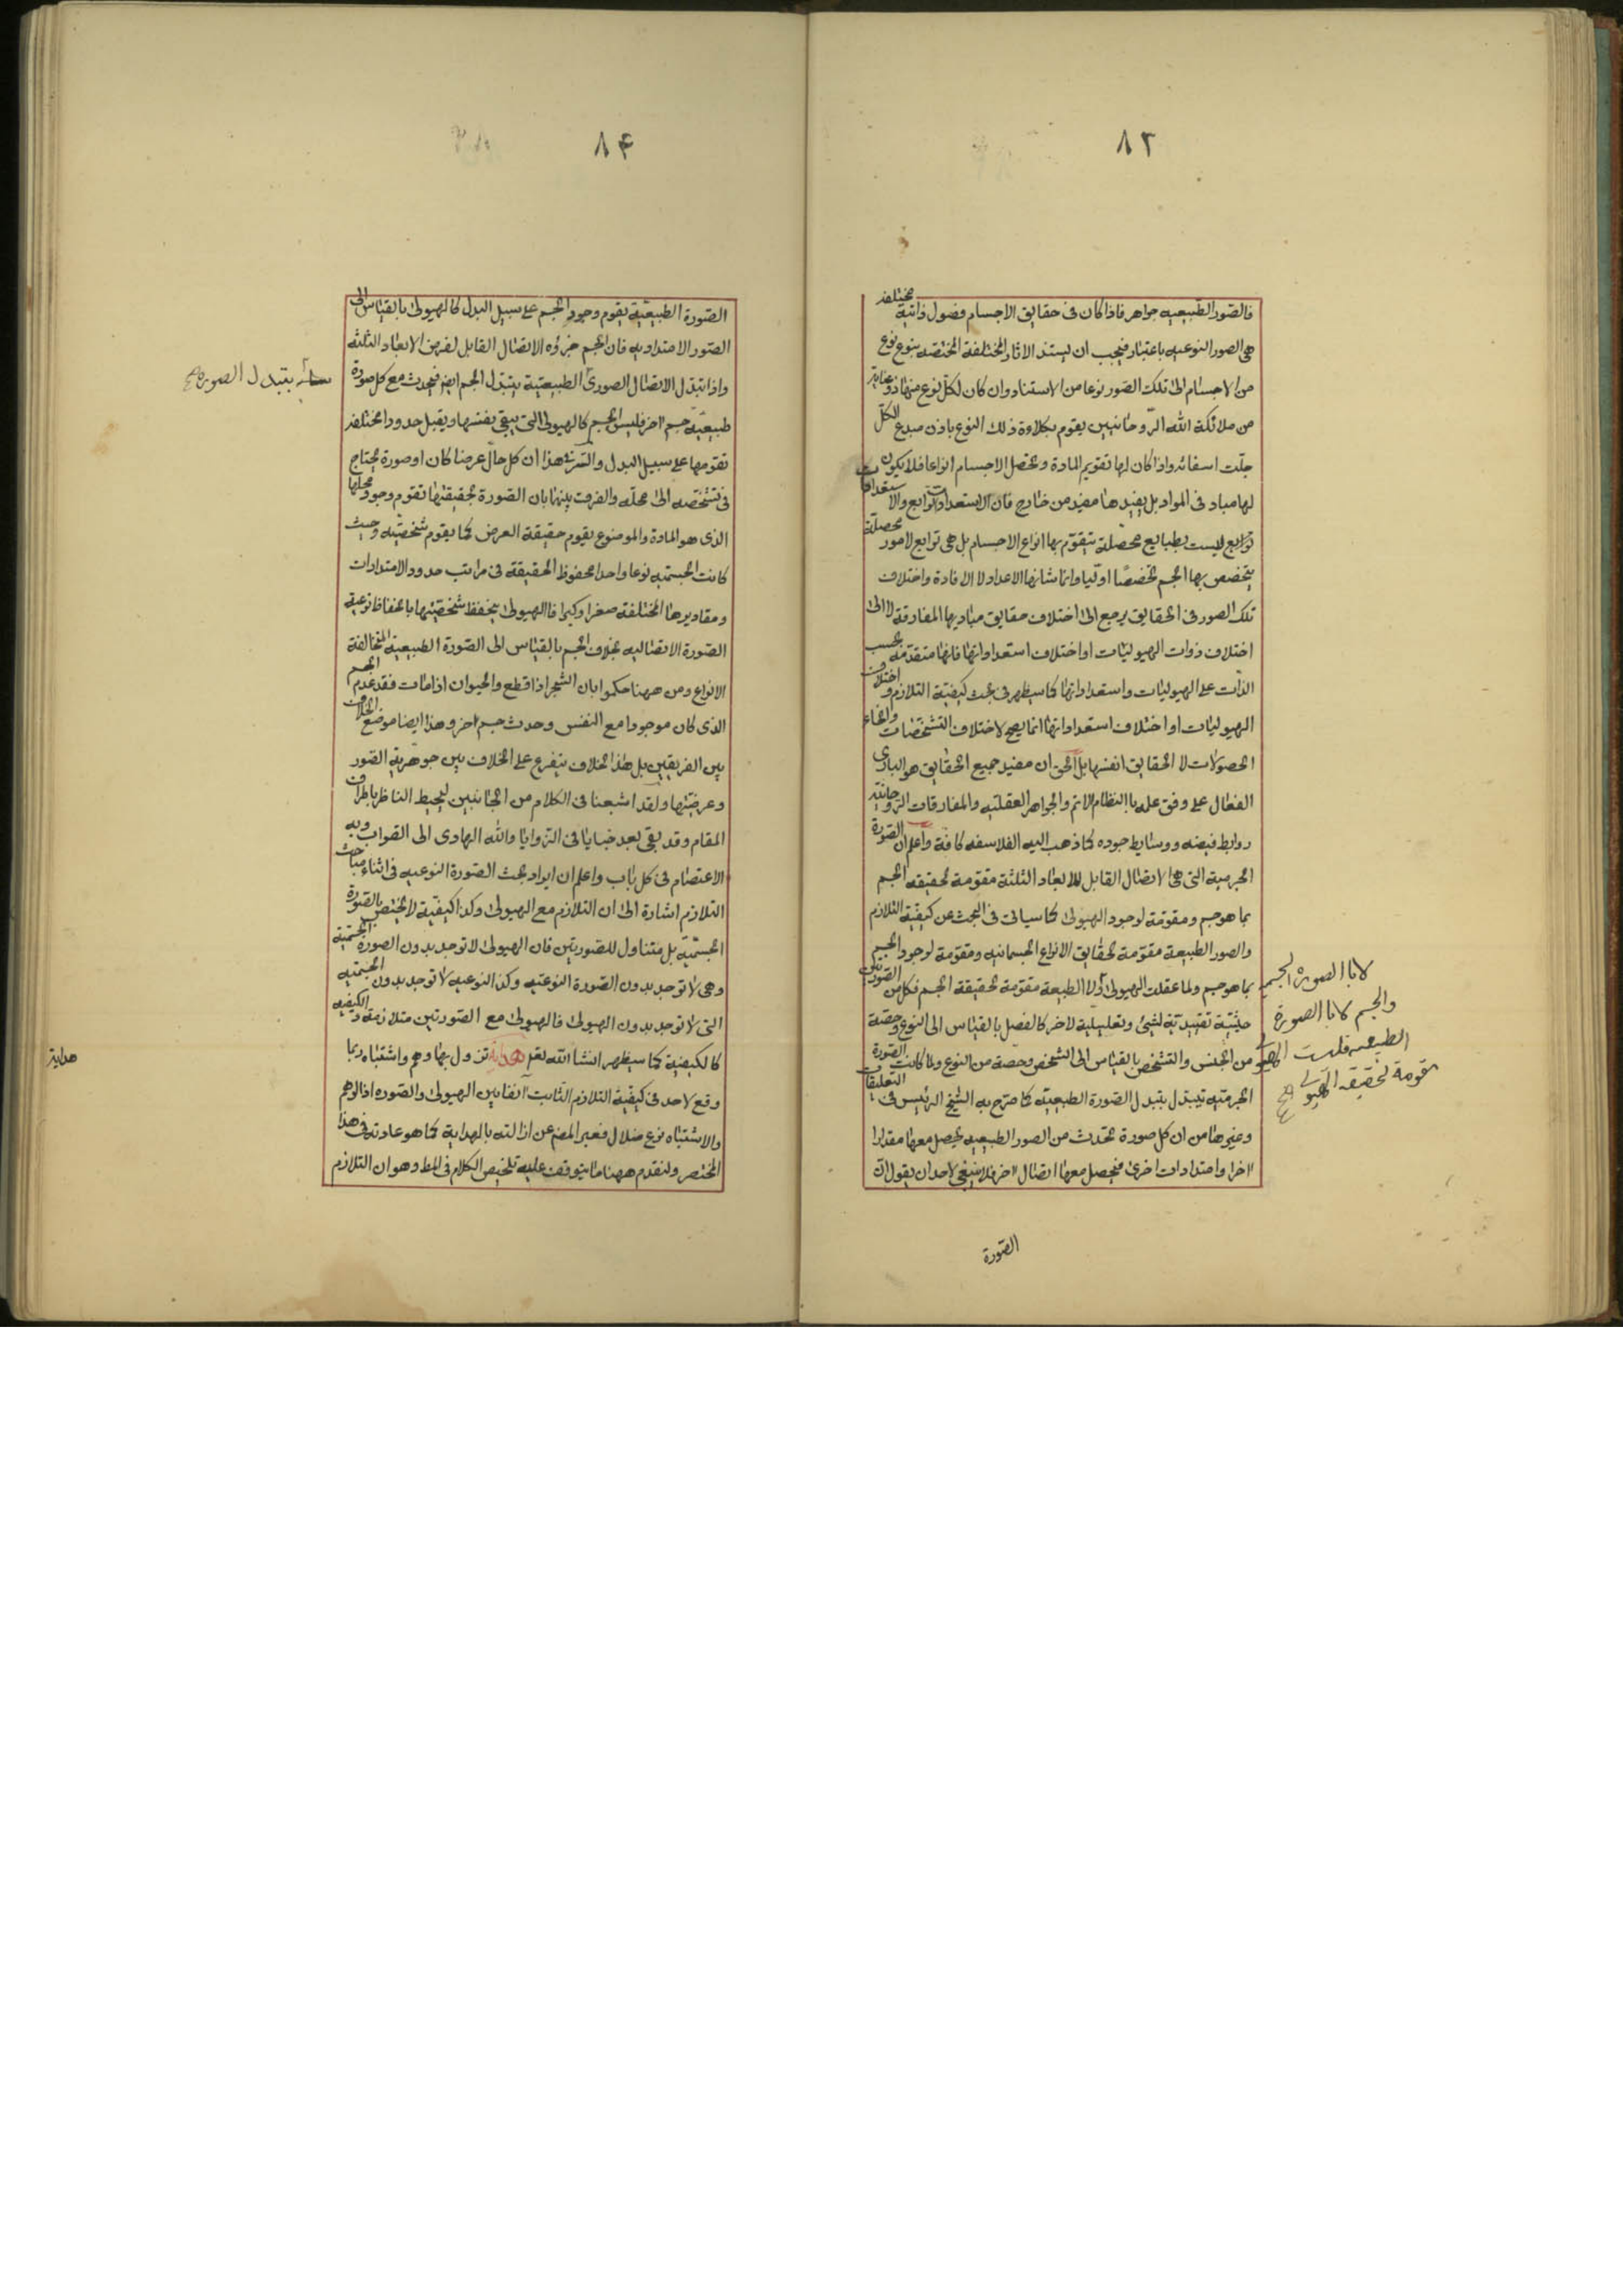 ٨٢
فالصّور الطّبيعيه جواهر فاذا كان فى حقايق الاجسام فصول ذاتية مختلفة
هى الصور النوعيه باعتبار فيجب ان يستند الاثار المختلفة المختصّه بنوع نوع
من الاجسام الى تلك الصّور نوعا من الاستناد وان كان لكلّ نوع منها ذو عناية
من ملائكة الله الرّوحانيين يقوم بكلاءة ذلك النوع باذن مبدع الكلّ
جلّت اسمائه واذا كان لها تقويم المادة وتحصّل الاجسام انواعا فلا يكون
لها مباد فى المواد بل يفيدها مفيد من خارج فان الاستعدادات توابع والاستعدادات
توابع ليست بطبايع محصّلة يتقوّم بها انواع الاجسام بل هى توابع لامور محصلة
يتخصص بها الجسم تخصصًا اوليّا وانما شانها الاعداد لا الافادة واختلاف
تلك الصور فى الحقايق يرجع الى اختلاف حقايق مباديها المفارقة لا الى
اختلاف ذوات الهيوليات او اختلاف استعداداتها فانها متقدّمة بحسب
الذات على الهيوليات واستعداداتها كما سيظهر فى بحث كيفيّة التلازم و اختلاف
الهيوليات او اختلاف استعداداتها انما يصحح لاختلاف التشخّصات وانحاء
الحصولات لا الحقايق انفسها بل الحق ان مفيد جميع الحقايق هو البارى
الفعّال على وفق علمه بالنظام الاتم والجواهر العقليّه والمفارقات الروحانية
روابط فيضه ووسايط جوده كما ذهب اليه الفلاسفه كافّة واعلم ان الصّورة
الجرمية التى هى الاتصال القابل للابعاد الثلثة مقوّمة لحقيقه الجسم
بما هو جسم ومقومة لوجود الهيولى كما سياتى فى البحث عن كيفيّة التلازم
والصور الطبيعة مقوّمة لحقايق الانواع الجسمانيه ومقوّمة لوجود الجسم
بما هو جسم ولما عقلت الهيولى اولا الطبيعة مقومة لحقيقة الجسم فكل من الصّورتين
حيثيّة تقييديّة لشئ وتعليلية لاخر كالفصل بالقياس الى النوع وحصّة
من الجنس والتشخّص بالقياس الى الشخص وحصّة من النوع ولما كانت الصّورة
الجرميّه تتبدّل بتبدل الصّورة الطبيعيّه كما صرّح به الشيخ الرئيس فى التعليقات
وغيرها من ان كل صورة تحدث من الصور الطبيعيه يحصل معها مقدارا
اخر او امتدادات اخرى فيحصل معها اتصال اخر فلا ينبغى لاحد ان يقول ان
الصّورة
لانا الصورة الجسم
والجسم لانا الصورة
الطبيعيه فليست الهيو
مقومة لحقيقه الهيولى
٨٤
الصّورة الطبيعيّة يقوم وجود الجسم على سبيل البدل كالهيولى بالقياس الى
الصّور الامتداديه فان الجسم جزؤه الاتصال القابل لفرض الابعاد الثلثه
واذا تبدّل الاتصال الصورىّ الطبيعيّة يتبدّل الجسم ايضا فيحدث مع كل صورة
طبيعيّة جسم اخر فليس الجسم كالهيولى التى يبقى بنفسها ويقبل حدودا مختلفة
تقومها على سبيل البدل والسّر فى هذا ان كل حال عرضا كان او صورة يحتاج
فى تشخّصه الى محلّه والفرق بينهما بان الصّورة بحقيقتها تقوم وجود محلها
الذى هو المادة والموضوع يقوم حقيقة العرض كما يقوم شخصيّته وحيث
كانت الجسميه نوعا واحدا محفوظ الحقيقة فى مراتب حدود الامتدادات
ومقاديرها المختلفة صغرا وكبرا فالهيولى يتحفظ شخصيّتها بانحفاظ نوعية
الصّورة الاتصاليه بخلاف الجسم بالقياس الى الصّورة الطبيعية المتخالفة
الانواع ومن ههنا حكموا بان الشجر اذا قطع والحيوان اذا مات فقد عدم الجسم
الذى كان موجودا مع النفس وحدث جسم اخر وهذا ايضا موضع الخلاف
بين الفريقين بل هذا الخلاف يتفرع على الخلاف بين جوهرية الصّور
وعرضيّتها ولقد اشبعنا فى الكلام من الجانبين ليحيط الناظر باطراف
المقام وقد بقى بعد خبايا فى الزوايا والله الهادى الى الصّواب وبه
الاعتصام فى كل باب واعلم ان ايراد بحث الصّورة النوعيه فى اثناء مباحث
التلازم اشارة الى ان التلازم مع الهيولى وكذا كيفيّة لا يختص بالصّورة
الجسميّة بل متناول للصّورتين فان الهيولى لا توجد بدون الصورة الجسميّة
وهى لا توجد بدون الصّورة النوعيّه وكذا النوعيه لا توجد بدون الجسميّه
التى لا توجد بدون الهيولى فالهيولى مع الصّورتين متلازمة و الكيفيه
كالكيفية كما سيظهر انشا الله تعم هداية تزول بها وهم واشتباه ربما
وقع لاحد فى كيفيّة التلازم الثابت آنفا بين الهيولى والصّوره اذ الوهم
والاشتباه نوع ضلال فعبر المصنف عن ازالته بالهداية كما هو عادته فى هذا
المختصر ولنقدم ههنا ما يتوقف عليه تلخيص الكلام فى المط وهو ان التلازم
بتبدل الصورة
هداية